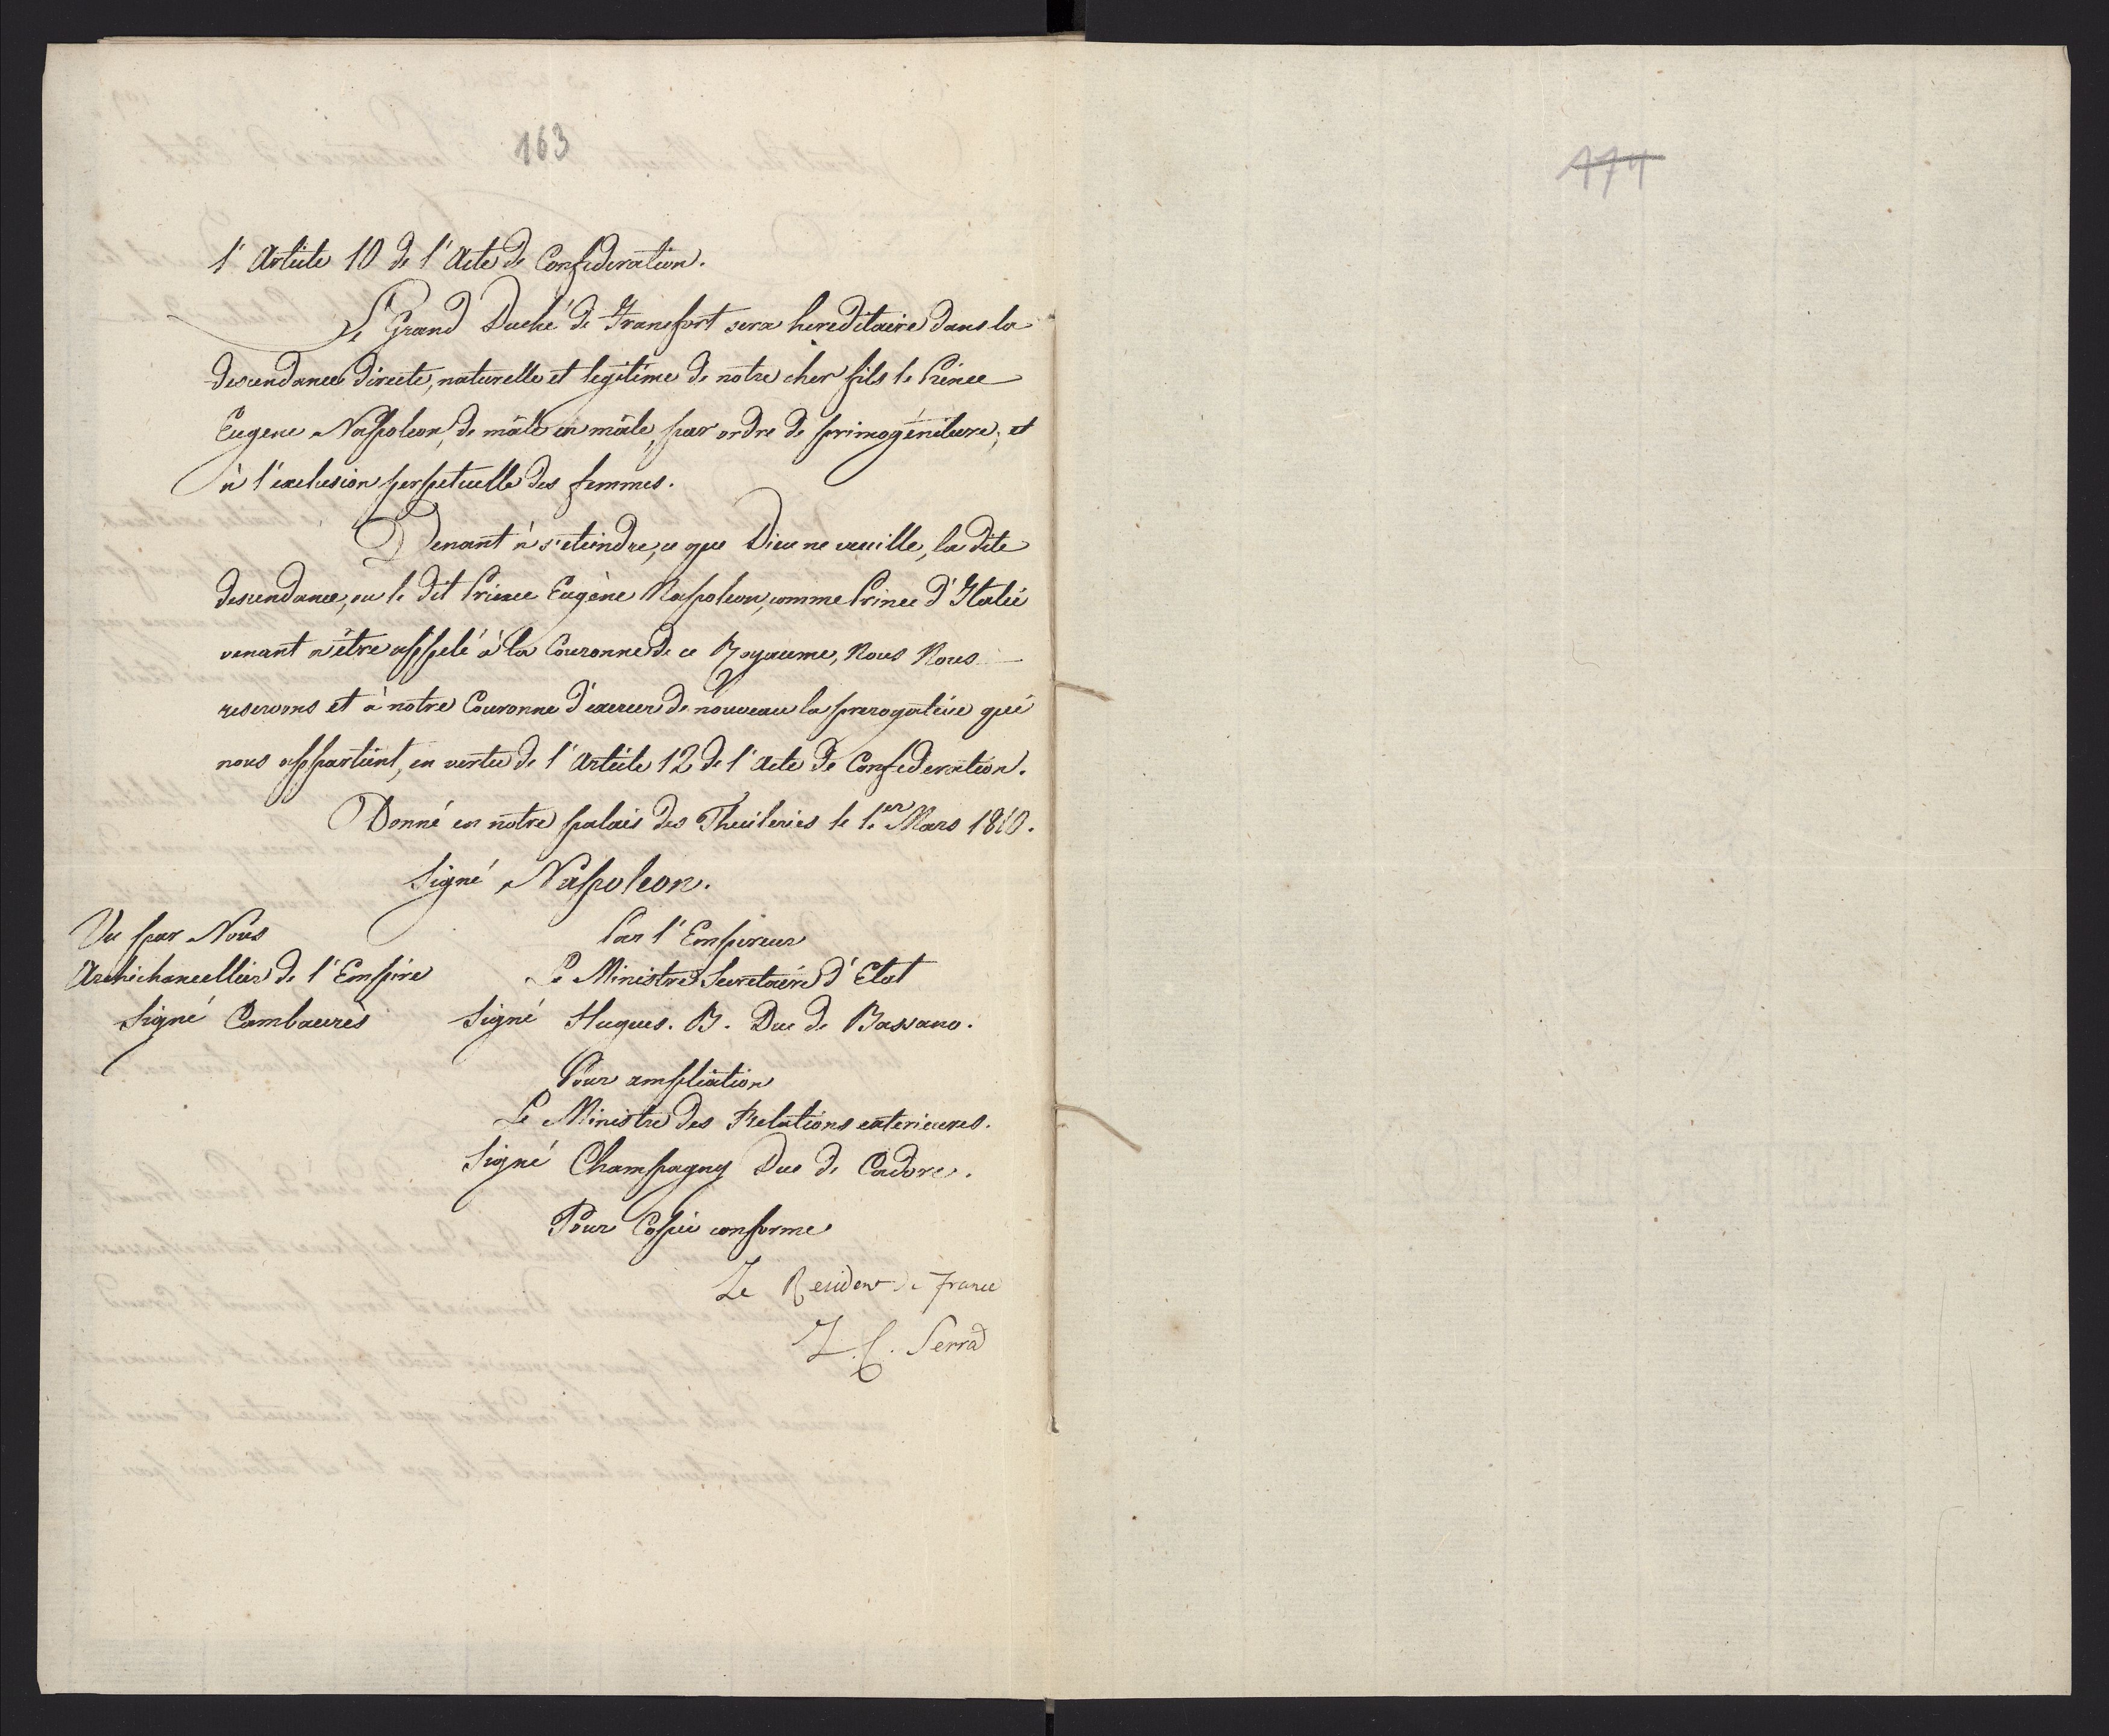 163
l'Article 10 de l'Acte de Confederation.
Le Grand Duché de Francfort sera hereditaire dans la
descendance directe, naturelle et legitime de notre cher fils le Prince
Eugene Napoleon, de mâle en mâle, par ordre de primogéniture, et
à l'exclusion perpetuelle des femmes.
Venant à s'eteindre, ce que Dieu ne veuille, la dite
descendance, ou le dit Prince Eugène Napoleon, comme Prince d'Italie
venant à être appelé à la Couronne de ce Royaume, Nous Nous
reservons et à notre Couronne d'exercer de nouveau la prerogative qui
nous appartient, en vertu de l'Article 12 de l'Acte de Confederation.
Donné en notre palais des Thuileries le 1.er Mars 1810.
Signé Napoleon.
Vu par Nous
Archichancellier de l'Empire
Signé Cambacerès
Par l'Empereur
Le Ministre Secretaire d'Etat
Signé Hugues. B. Duc de Bassano.
Pour ampliation
Le Ministre des Relations exterieures.
Signé Champagny Duc de Cadore.
Pour Copie conforme
Le Resident de France
Serra